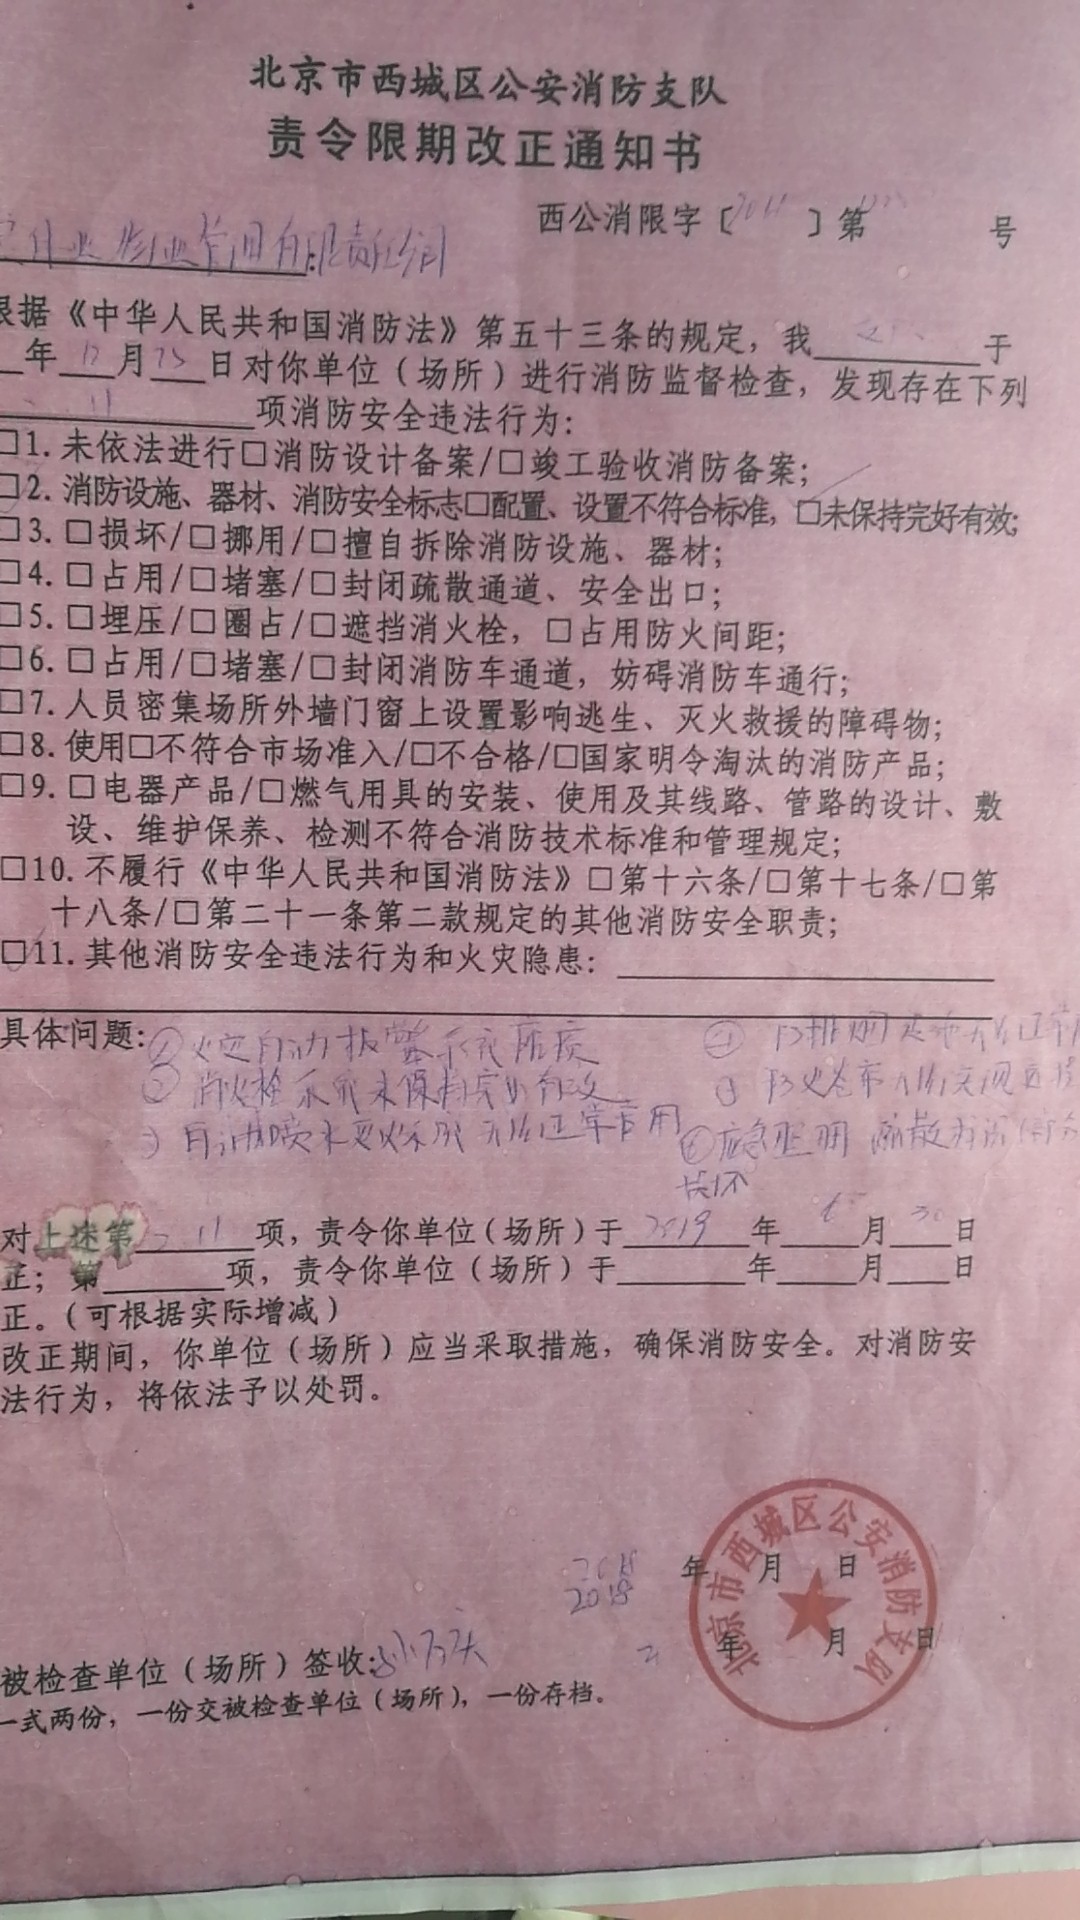 北京市西城区公安消防支队
责令限期改正通知书
西公消限字〔 〕第 号
物业管理有限责任公司
根据《中华人民共和国消防法》第五十三条的规定，我 于
年12月25日对你单位（场所）进行消防监督检查，发现存在下列
11 项消防安全违法行为：
□1. 未依法进行□消防设计备案/□竣工验收消防备案；
□2. 消防设施、器材、消防安全标志□配置、设置不符合标准，□未保持完好有效；
□3. □损坏/□挪用/□擅自拆除消防设施、器材；
□4. □占用/□堵塞/□封闭疏散通道、安全出口；
□5. □埋压/□圈占/□遮挡消火栓，□占用防火间距；
□6. □占用/□堵塞/□封闭消防车通道，妨碍消防车通行；
□7. 人员密集场所外墙门窗上设置影响逃生、灭火救援的障碍物；
□8. 使用□不符合市场准入/□不合格/□国家明令淘汰的消防产品；
□9. □电器产品/□燃气用具的安装、使用及其线路、管路的设计、敷
设、维护保养、检测不符合消防技术标准和管理规定；
□10. 不履行《中华人民共和国消防法》□第十六条/□第十七条/□第
十八条/□第二十一条第二款规定的其他消防安全职责；
□11. 其他消防安全违法行为和火灾隐患：
具体问题：①火灾自动报警系统 ④防排烟 无法正常
②消火栓系统未保持完好有效 ⑤防火卷帘无法
③自动喷水灭火系统无法正常启用 ⑥应急照明 疏散
损坏
对上述第 11 项，责令你单位（场所）于2019年6月30日
正；第 项，责令你单位（场所）于 年 月 日
正。（可根据实际增减）
改正期间，你单位（场所）应当采取措施，确保消防安全。对消防安
法行为，将依法予以处罚。
北京市西城区公安消防支队
2018 年 月 日
2018
年 月 日
被检查单位（场所）签收：
一式两份，一份交被检查单位（场所），一份存档。